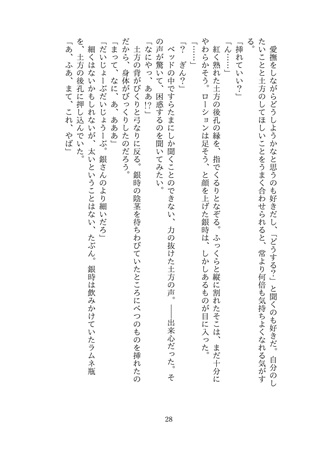 愛撫をしながらどうしようかなと思うのも好きだし、「どうする？」と聞くのも好きだ。自分のし
たいことと土方のしてほしいことをうまく合わせられると、常より何倍も気持ちよくなれる気がす
る。
「挿れていい？」
「ん……」
紅く熟れた土方の後孔の縁を、指でくるりとなぞる。ふっくらと縦に割れたそこは、まだ十分に
やわらかそう。ローションは足そう、と顔を上げた銀時は、しかしあるものが目に入った。
「……」
「？　ぎん？」
ベッドの中ですらたまにしか聞くことのできない、力の抜けた土方の声。――出来心だった。そ
の声が驚いて、困惑するのを聞いてみたい。
「なにやっ、ああ!?」
土方の背がびくりと弓なりに反る。銀時の陰茎を待ちわびていたところにべつのものを挿れたの
だから、身体がびっくりしたのだろう。
「まって、なに、あ、ああ」
「だいじょーぶだいじょうーぶ。銀さんのより細いだろ」
細くはないかもしれないが、太いということはない、たぶん。銀時は飲みかけていたラムネ瓶
を、土方の後孔に押し込んでいた。
「あ、ふあ、まて、これ、やば」
28